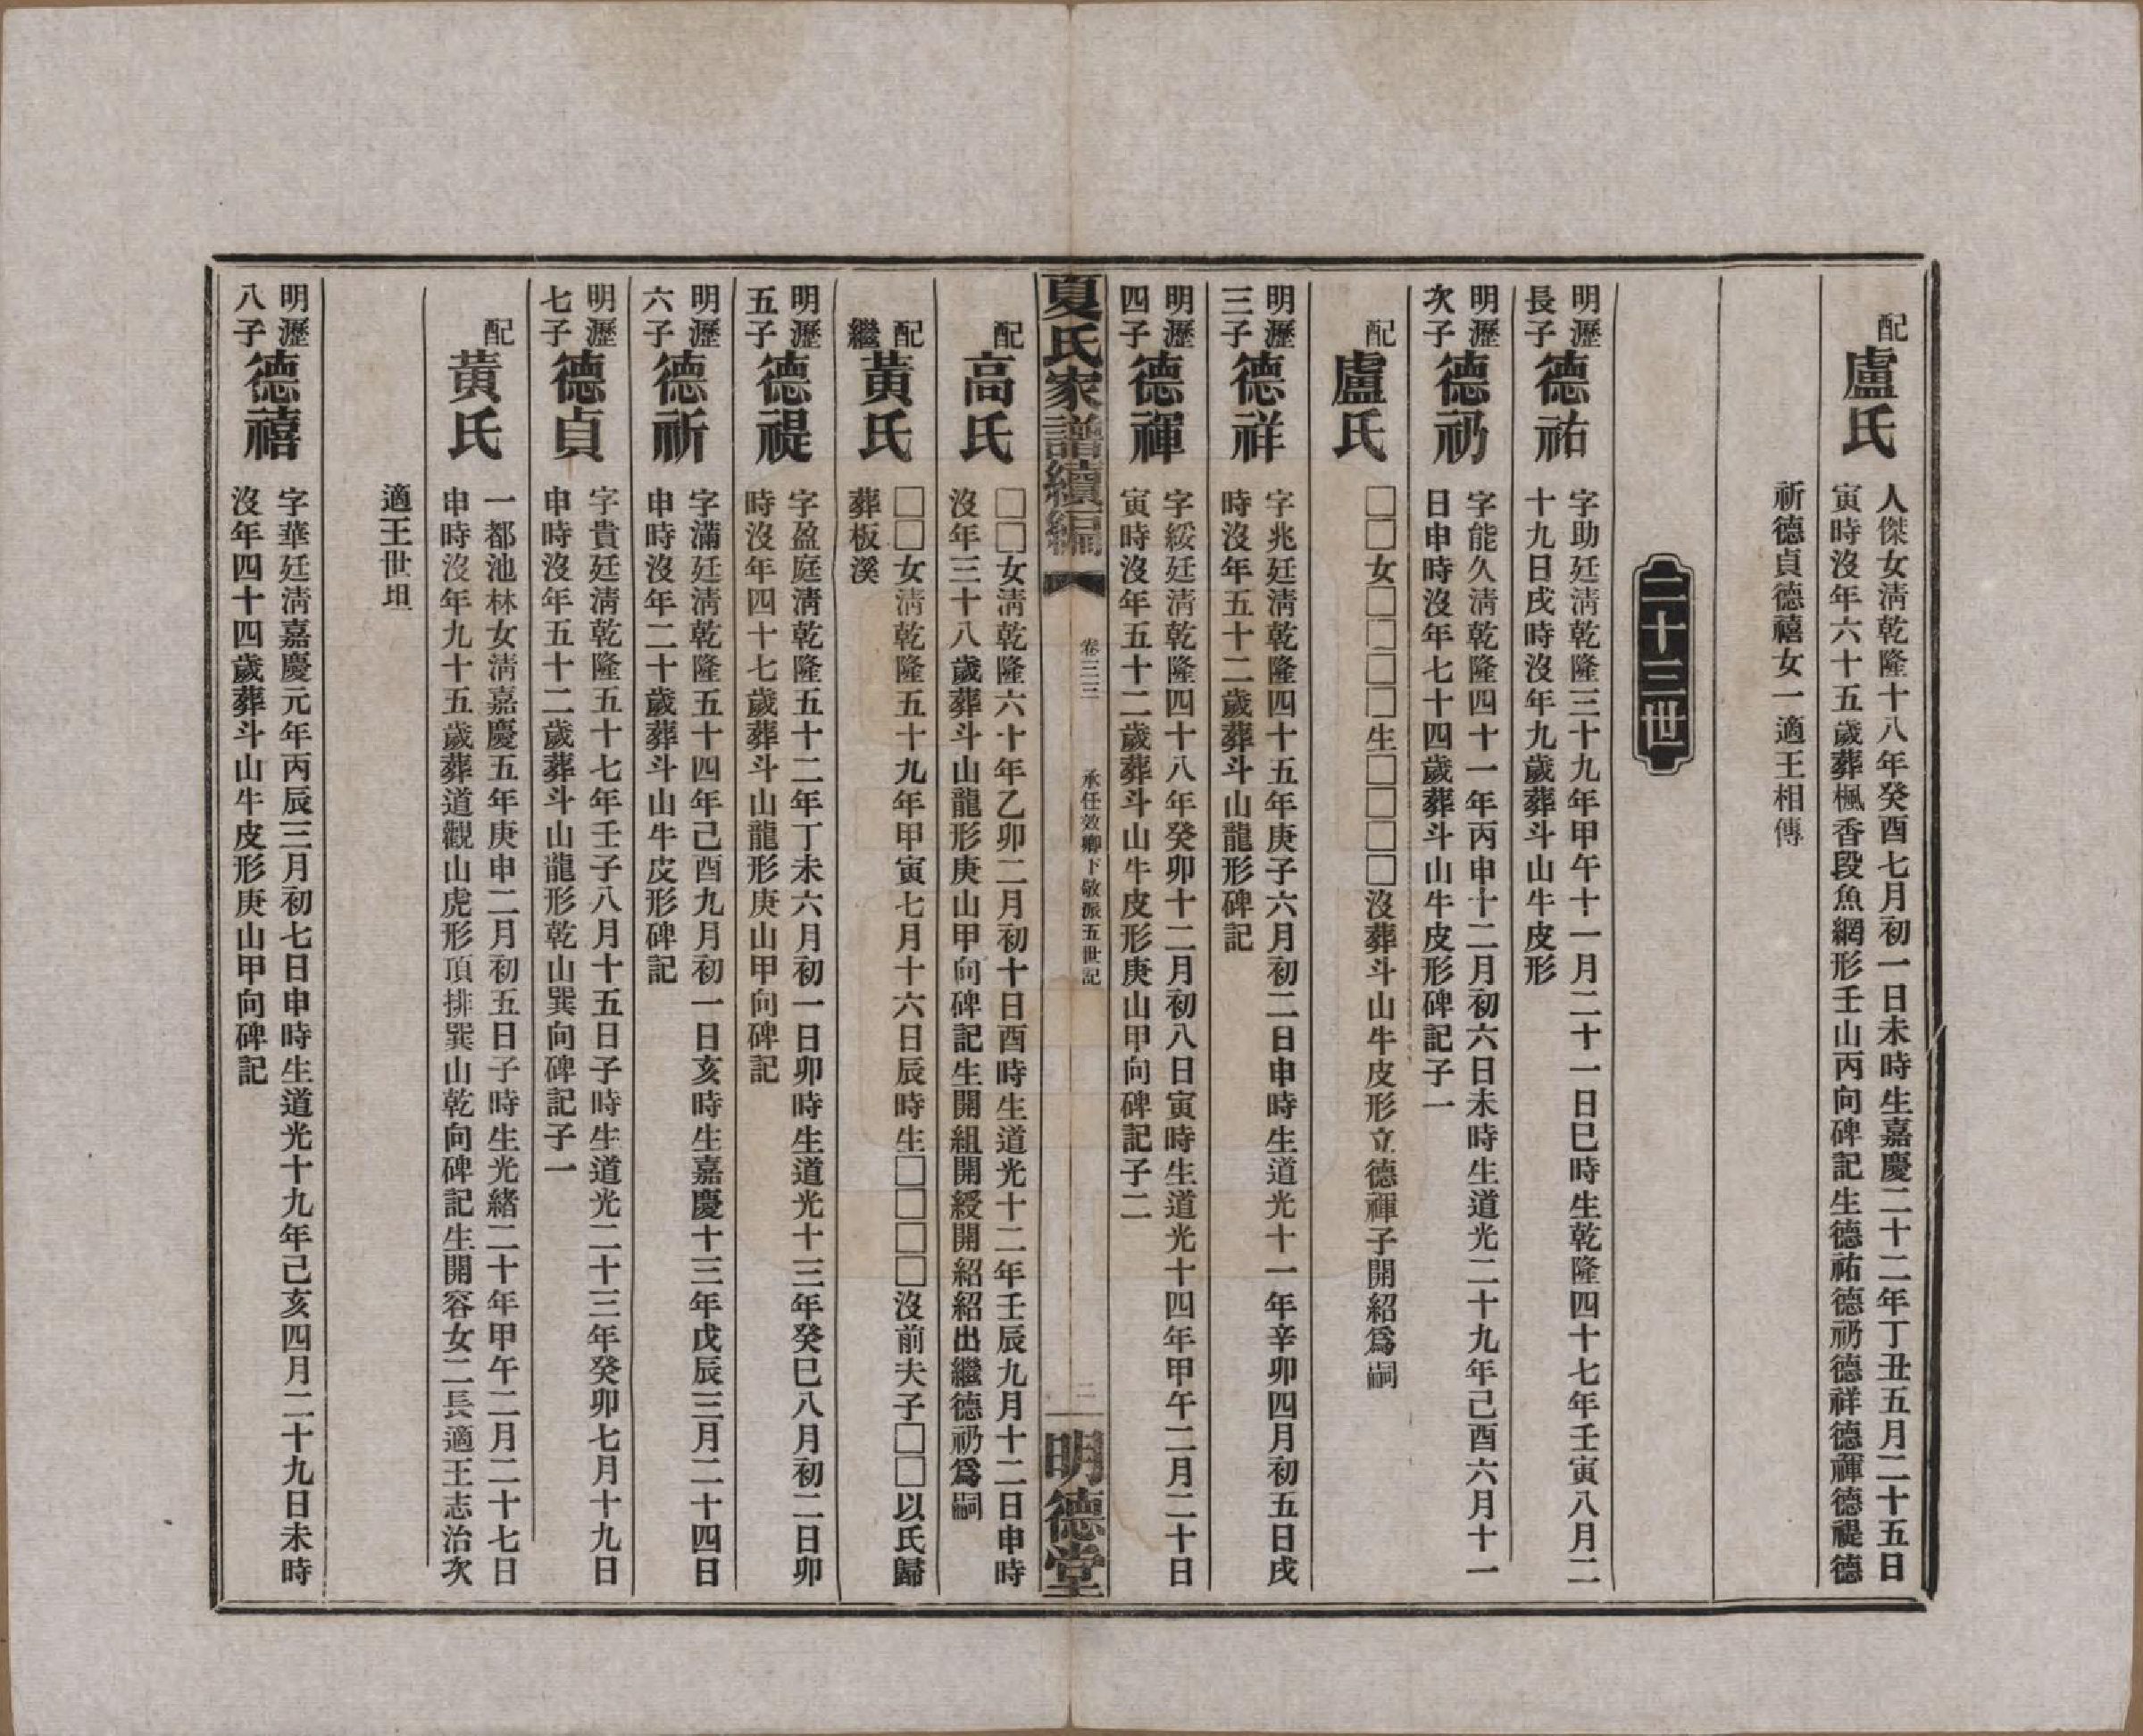 配
盧氏
人傑女淸乾隆十八年癸酉七月初一日未時生嘉慶二十二年丁丑五月二十五日
寅時沒年六十五歲葬楓香段魚網形壬山丙向碑記生德祐德礽德祥德禈德禔德
祈德貞德禧女一適王相傳
二十三世
明瀝
長子
德祐
字助廷淸乾隆三十九年甲午十一月二十一日巳時生乾隆四十七年壬寅八月二
十九日戌時沒年九歲葬斗山牛皮形
明瀝
次子
德礽
字能久淸乾隆四十一年丙申十二月初六日未時生道光二十九年己酉六月十一
日申時沒年七十四歲葬斗山牛皮形碑記子一
配
盧氏
□□女□□□□生□□□□沒葬斗山牛皮形立德禈子開紹爲嗣
明瀝
三子
德祥
字兆廷淸乾隆四十五年庚子六月初二日申時生道光十一年辛卯四月初五日戌
時沒年五十二歲葬斗山龍形碑記
明瀝
四子
德禈
字綏廷淸乾隆四十八年癸卯十二月初八日寅時生道光十四年甲午二月二十日
寅時沒年五十二歲葬斗山牛皮形庚山甲向碑記子二
夏氏家譜續編
卷三三
承任效卿下敬派五世記
三
明德堂
配
高氏
□□女淸乾隆六十年乙卯二月初十日酉時生道光十二年壬辰九月十二日申時
沒年三十八歲葬斗山龍形庚山甲向碑記生開組開綬開紹紹出繼德礽爲嗣
配
繼
黃氏
□□女淸乾隆五十九年甲寅七月十六日辰時生□□□□沒前夫子□□以氏歸
葬板溪
明瀝
五子
德禔
字盈庭淸乾隆五十二年丁未六月初一日卯時生道光十三年癸巳八月初二日卯
時沒年四十七歲葬斗山龍形庚山甲向碑記
明瀝
六子
德祈
字滿廷淸乾隆五十四年己酉九月初一日亥時生嘉慶十三年戊辰三月二十四日
申時沒年二十歲葬斗山牛皮形碑記
明瀝
七子
德貞
字貴廷淸乾隆五十七年壬子八月十五日子時生道光二十三年癸卯七月十九日
申時沒年五十二歲葬斗山龍形乾山巽向碑記子一
配
黃氏
一都池林女淸嘉慶五年庚申二月初五日子時生光緒二十年甲午二月二十七日
申時沒年九十五歲葬道觀山虎形頂排巽山乾向碑記生開容女二長適王志治次
適王世坦
明瀝
八子
德禧
字華廷淸嘉慶元年丙辰三月初七日申時生道光十九年己亥四月二十九日未時
沒年四十四歲葬斗山牛皮形庚山甲向碑記